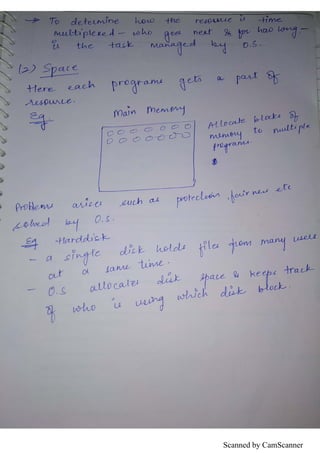 → To determine how the resource is time
multiplexed - who goes next & for how long -
is the task managed by O.S.
(2) Space
Here each programs gets a part of
resource.
Eg
Main Memory
Allocate blocks of
memory to multiple
programs
Problems arises such as protection, fairness etc
solved by O.S.
Eg Harddisk
- a single disk holds files from many users
at a same time.
- O.S allocates disk space & keeps track
of who is using which disk block.
Scanned by CamScanner